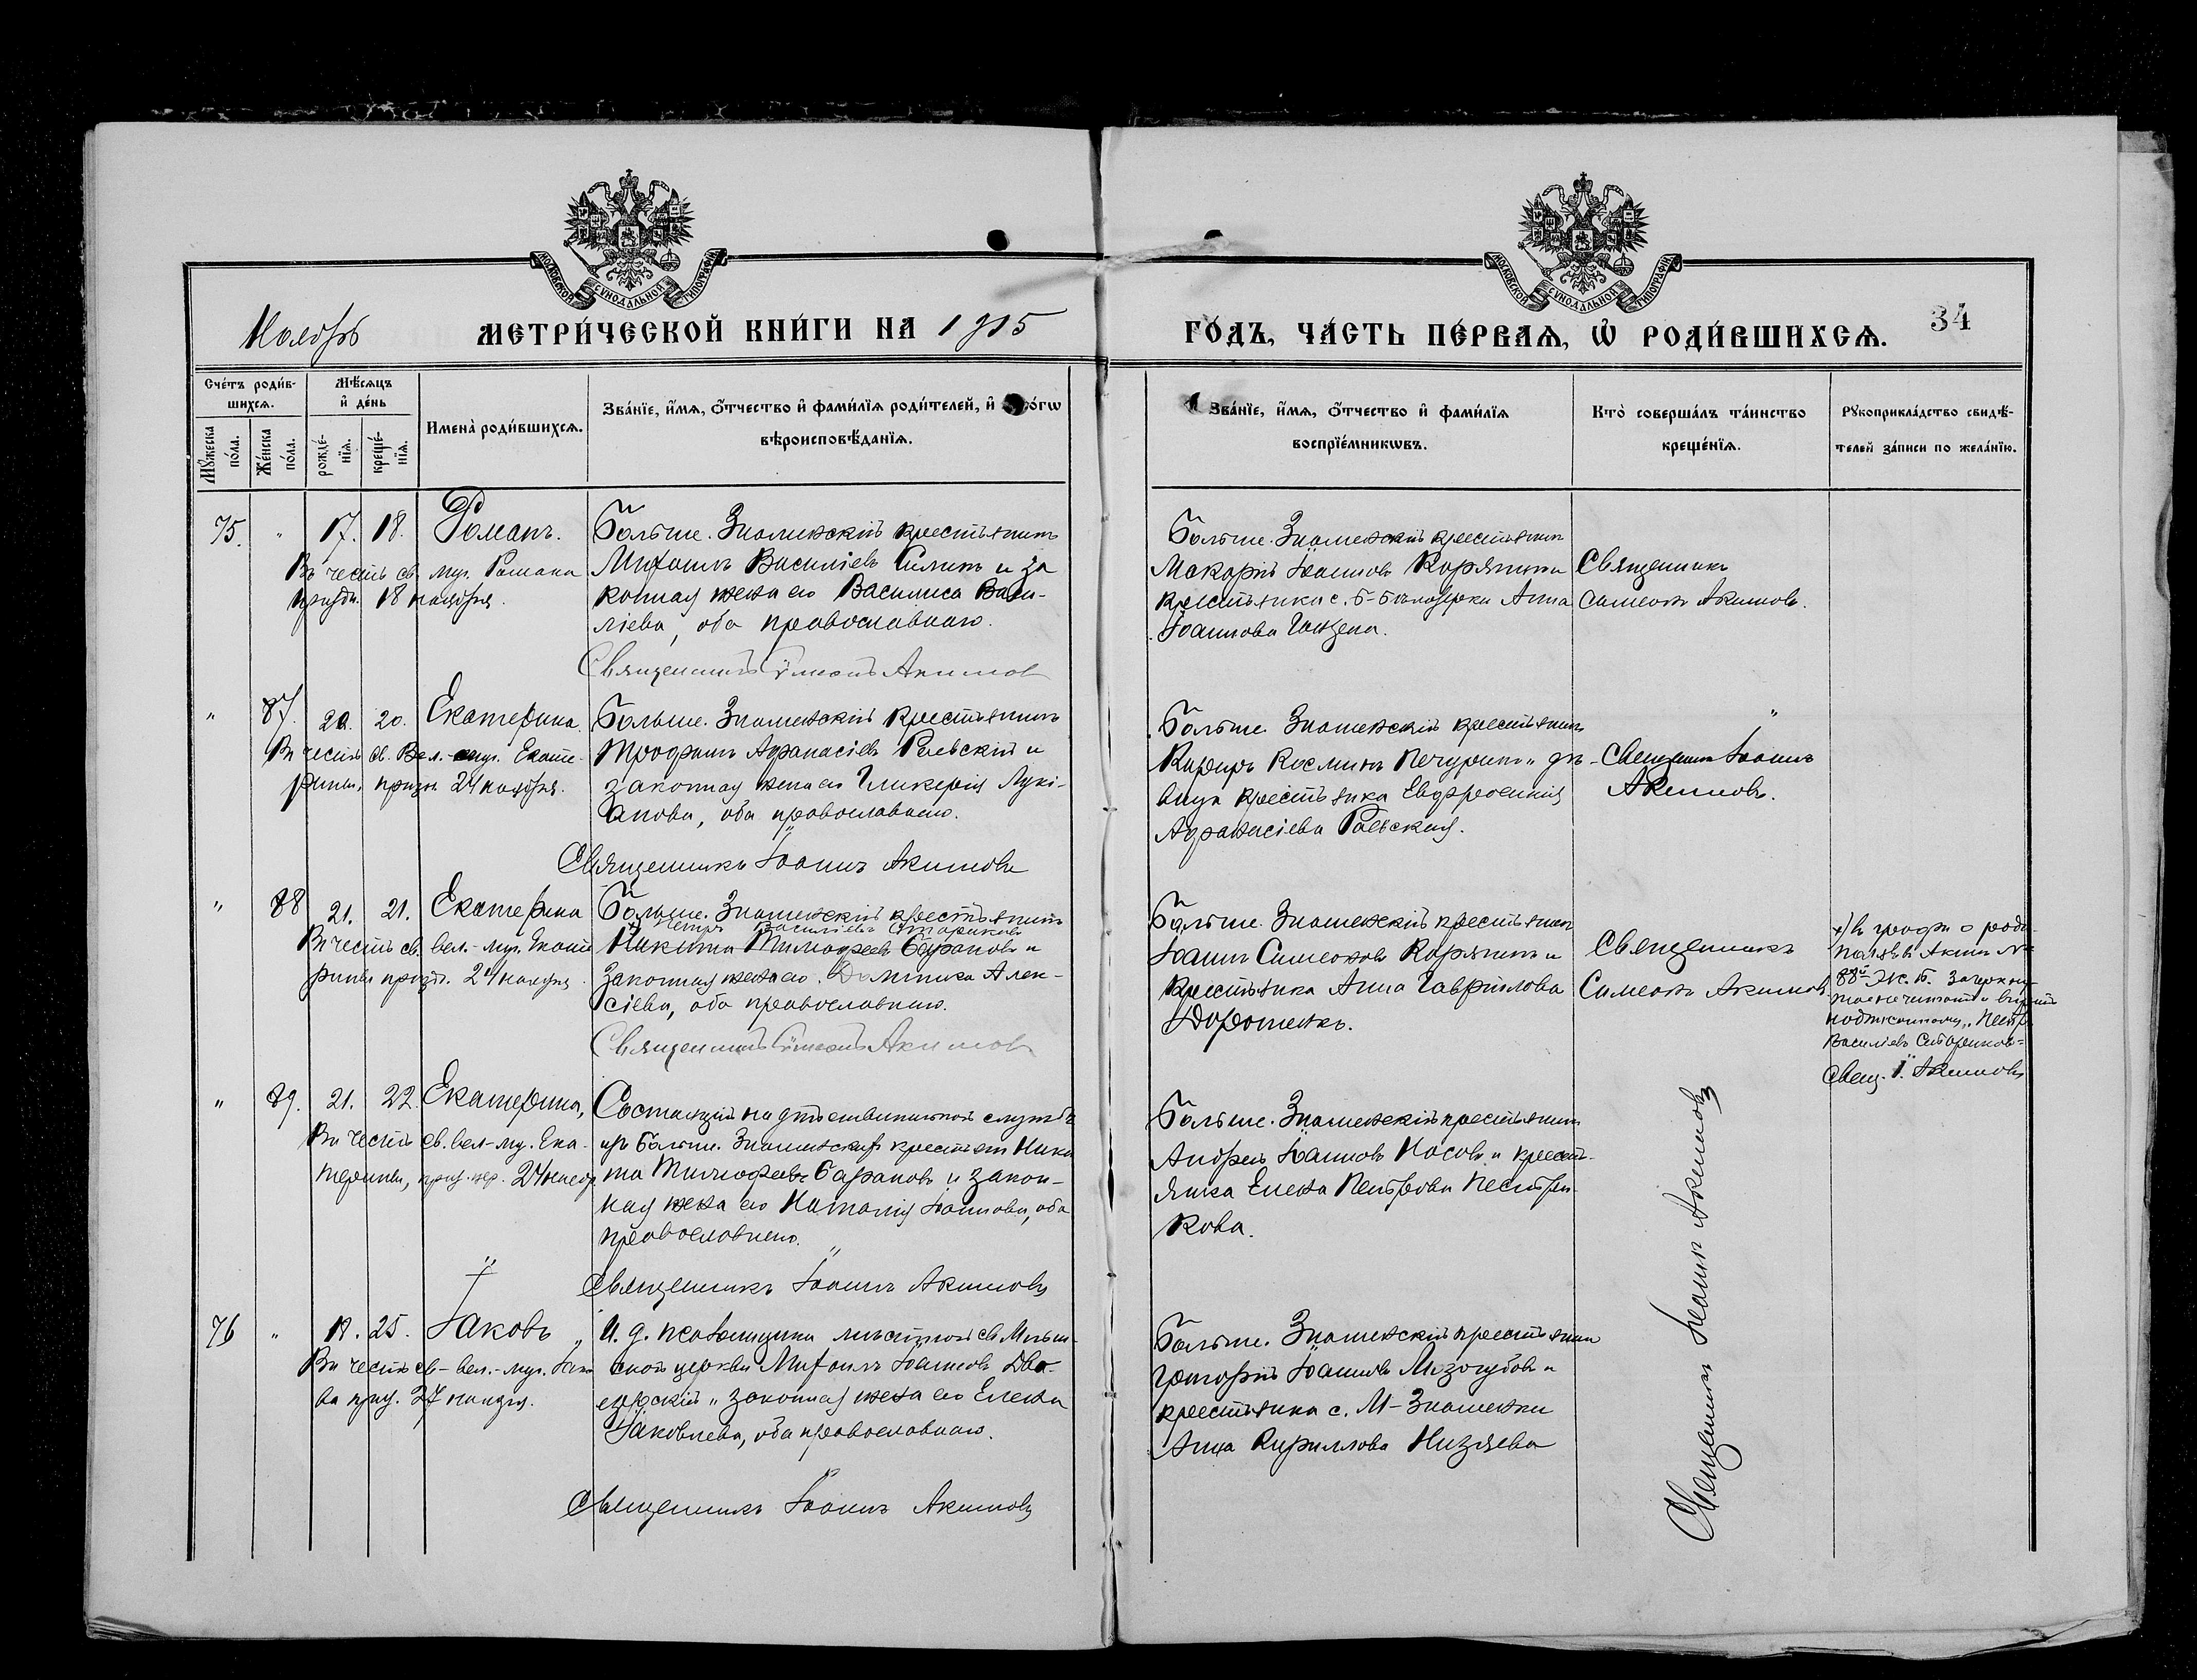 МОСКОВСКОЙ СУНОДАЛЬНОЙ ТИПОГРАФІИ
МОСКОВСКОЙ СУНОДАЛЬНОЙ ТИПОГРАФІИ
Ноябрь
МЕТРИ́ЧЕСКОЙ КНИ́ГИ НА 1915
ГО́ДЪ, ЧА́СТЬ ПЕ́РВАѦ, Ѡ РОДИ́ВШИХСѦ.
34
Сче́тъ роди́в-
шихсѧ.
Мѣ́сѧцъ
и де́нь
Имена̀ роди́вшихсѧ.
Зва́нїе, и́мѧ, ѻ́тчество и фами́лїѧ роди́телей, и
вѣроисповѣ́данїѧ.
Му́жеска
по́ла.
Же́нска
по́ла.
рожде́-
нїѧ.
креще́-
нїѧ.
Зва́нїе, и́мѧ, ѻ́тчество и фами́лїѧ
воспрїе́мникѡвъ.
Кто̀ соверша́лъ та́инство
креще́нїѧ.
Рꙋкоприкла́дство свидѣ́-
телей за́писи по жела́нїю.
75. " 17. 18. Романъ.
Въ честь св. муч. Романа
празд. 18 ноября.
Больше-Знаменскій крестьянинъ
Михаилъ Василіевъ Силинъ и за
конная жена его Василиса Васи-
ліева, оба православнаго.
Священникъ Сѵмеонъ Акимовъ
Больше-Знаменскій крестьянинъ
Макарій Іоанновъ Карягинъ и
крестьянка с. Б-Бѣлозерки Анна
Іоаннова
Священникъ
Симеонъ Акимовъ.
" 87. 20. 20. Екатерина.
Въ честь св. Вел.-муч. Екате-
рины, празд. 24 ноября.
Больше-Знаменскій крестьянинъ
Трофимъ Афанасіевъ Раевскій и
законная жена его Гликерія Лукі-
анова, оба православнаго.
Священникъ Іоаннъ Акимовъ
Больше-Знаменскій крестьянинъ
Киръ Косминъ Печуринъ и дѣ-
вица крестьянка Евфросинія
Афанасіева Раевская.
Священникъ Іоаннъ
Акимовъ.
" 88 21. 21. Екатерина
Въ честь св. вел.-муч. Екате
рины празд. 24 ноября
Больше-Знаменскій крестьянинъ
Петръ Василіевъ Стариковъ
Никита Тимофеевъ Барановъ и
законная жена его Домника Алек-
сіева, оба православнаго.
Священникъ Сѵмеонъ Акимовъ
Больше-Знаменскій крестьянинъ
Іоаннъ Симеоновъ Карягинъ и
крестьянка Анна Гавриилова
Дорошенко.
Священникъ
Симеонъ Акимовъ
х) въ графѣ о роди-
теляхъ въ Актѣ №
88й Ж. п. зачеркну-
тое не читать и вѣрить
надписанному „Петръ
Василіевъ Стариковъ"
Свящ. І. Акимовъ
" 89. 21. 22. Екатерина,
Въ честь св. вел-му. Ека-
терины, 24 нояб.
Состоящій на дѣйствительной службѣ
изъ Больше-Знаменскихъ крестьянъ Ники
та Тимофеевъ Барановъ и закон-
ная жена его Наталія Іоаннова, оба
православнаго.
Священникъ Іоаннъ Акимовъ
Больше-Знаменскій крестьянинъ
Андрей Іоанновъ Носовъ и крестъ-
янка Елена Петрова Пестри-
кова.
76 " 19. 25. Іаковъ
Въ честь св. вел.-муч. Іако
ва празд. 27 ноября.
И. д. псаломщика мѣстной св Михаи-
ской церкви Михаилъ Іоанновъ
и законная жена его Елена
Іаковлева, оба православнаго.
Священникъ Іоаннъ Акимовъ
Больше-Знаменскій крестьянинъ
Григорій Іоанновъ Мозогубовъ и
крестьянка с. М-Знаменки
Анна Кириллова Низяева
Священникъ Іоаннъ Акимовъ